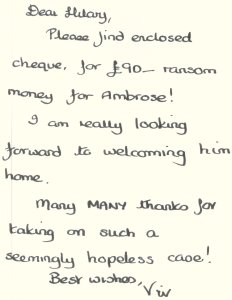 Dear Hilary,
Please find enclosed
cheque, for £90— ransom
money for Ambrose!
I am really looking
forward to welcoming him
home.
Many MANY thanks for
taking on such a
seemingly hopeless case!
Best wishes,
Viv